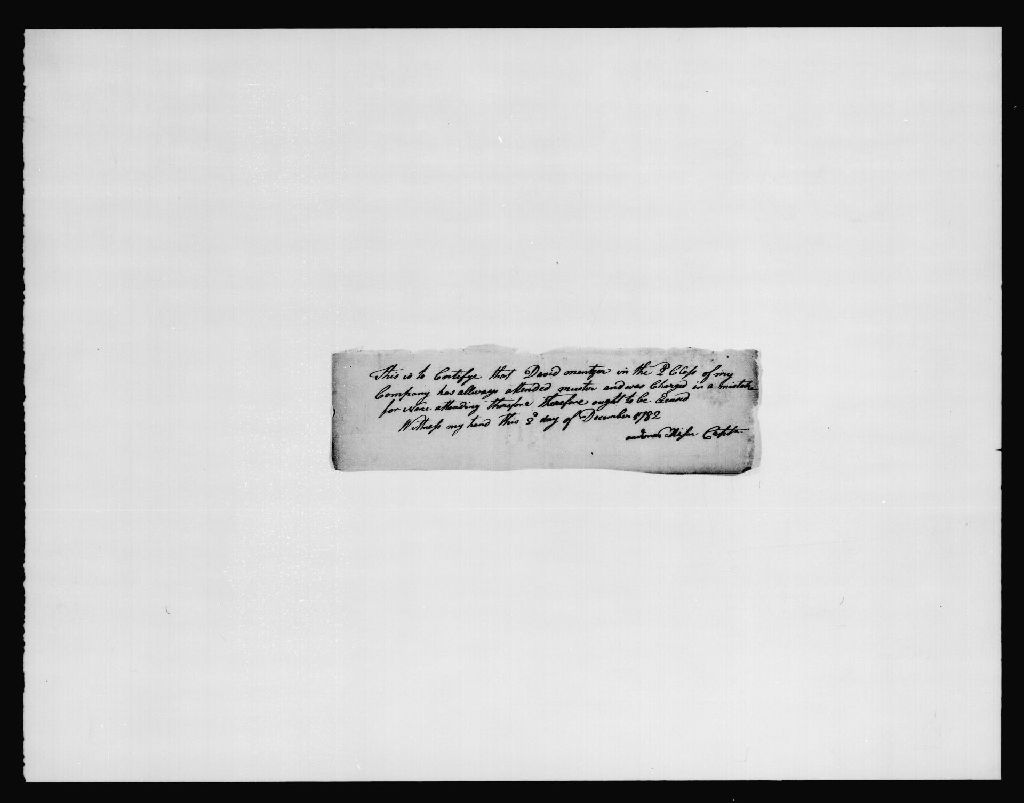 This is to Certifye that David mentzer in the 2d Class of my
Company has allways attended muster and was Charged in a mistake
for None attending therefore therefore ought to be
Wittness my hand this 2d day of December 1782
Capt